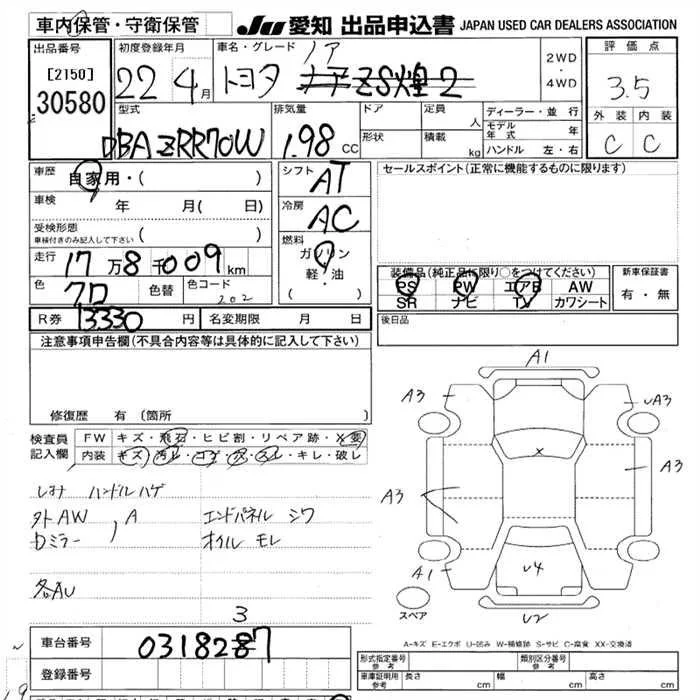 車内保管・守衛保管
JU 愛知 出品申込書 JAPAN USED CAR DEALERS ASSOCIATION
出品番号
[2150]
30580
初度登録年月
22 4月
車名・グレード
ノア
トヨタ ZS煌2
2WD
4WD
評価点
3.5
外装 内装
C C
型式
DBA ZRR70W
排気量
1.98 CC
ドア
形状
定員 人
積載 kg
ディーラー・並行
モデル年式 年
ハンドル 左・右
車歴
自家用・( )
車検
年 月( 日)
受検形態
車検付きのみ記入して下さい
( )
走行
17万8千009km
色
クロ
色替
色コード
202
シフト
AT
冷房
AC
燃料
ガソリン
軽・油
( )
セールスポイント(正常に機能するものに限ります)
装備品(純正品に限り○をつけてください)
PS PW エアB AW
SR ナビ TV カワシート
新車保証書
有・無
R券 13330円
名変期限 月 日
後日品
注意事項申告欄(不具合内容等は具体的に記入して下さい)
修復歴 有(箇所
検査員記入欄
FW キズ・飛石・ヒビ割・リペア跡・X要
内装 キズ・汚レ・コゲ・穴・スレ・キレ・破レ
ハンドルハゲ
外AW
Dミラー
, A
エンドパネル シワ
オイル モレ
各AU
3
車台番号
0318287
登録番号
A1
A3
UA3
A3
A3
A1
X
U4
U2
スペア
A-キズ E-エクボ U-凹み W-補修跡 S-サビ C-腐食 XX-交換済
形式指定番号
参考
類別区分番号
参考
車庫証明用
参考
長さ cm
幅 cm
高さ cm